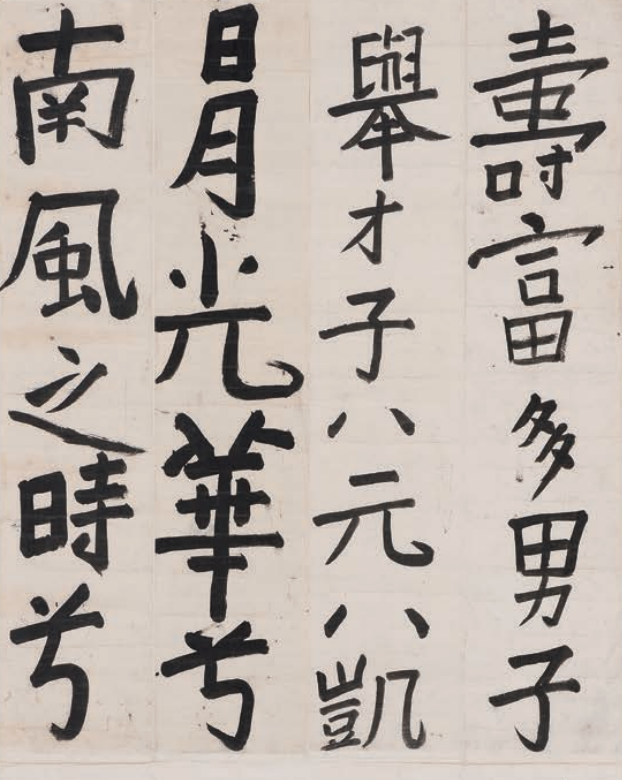 壽富多男子
舉才子八元八凱
日月光華兮
南風之時兮